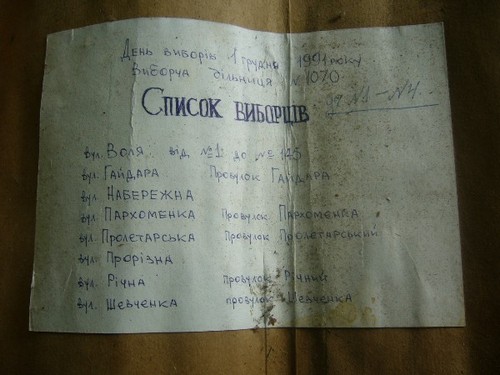 День виборів 1 грудня 1991 року
Виборча дільниця № 1070
Список виборців
№1 – №4
вул. Воля, від №1 до № 125
вул. Гайдара Провулок Гайдара
вул. Набережна
вул. Пархоменка Провулок Пархоменка
вул. Пролетарська Провулок Пролетарський
вул. Прорізна
вул. Річна провулок Річний
вул. Шевченка провулок Шевченка